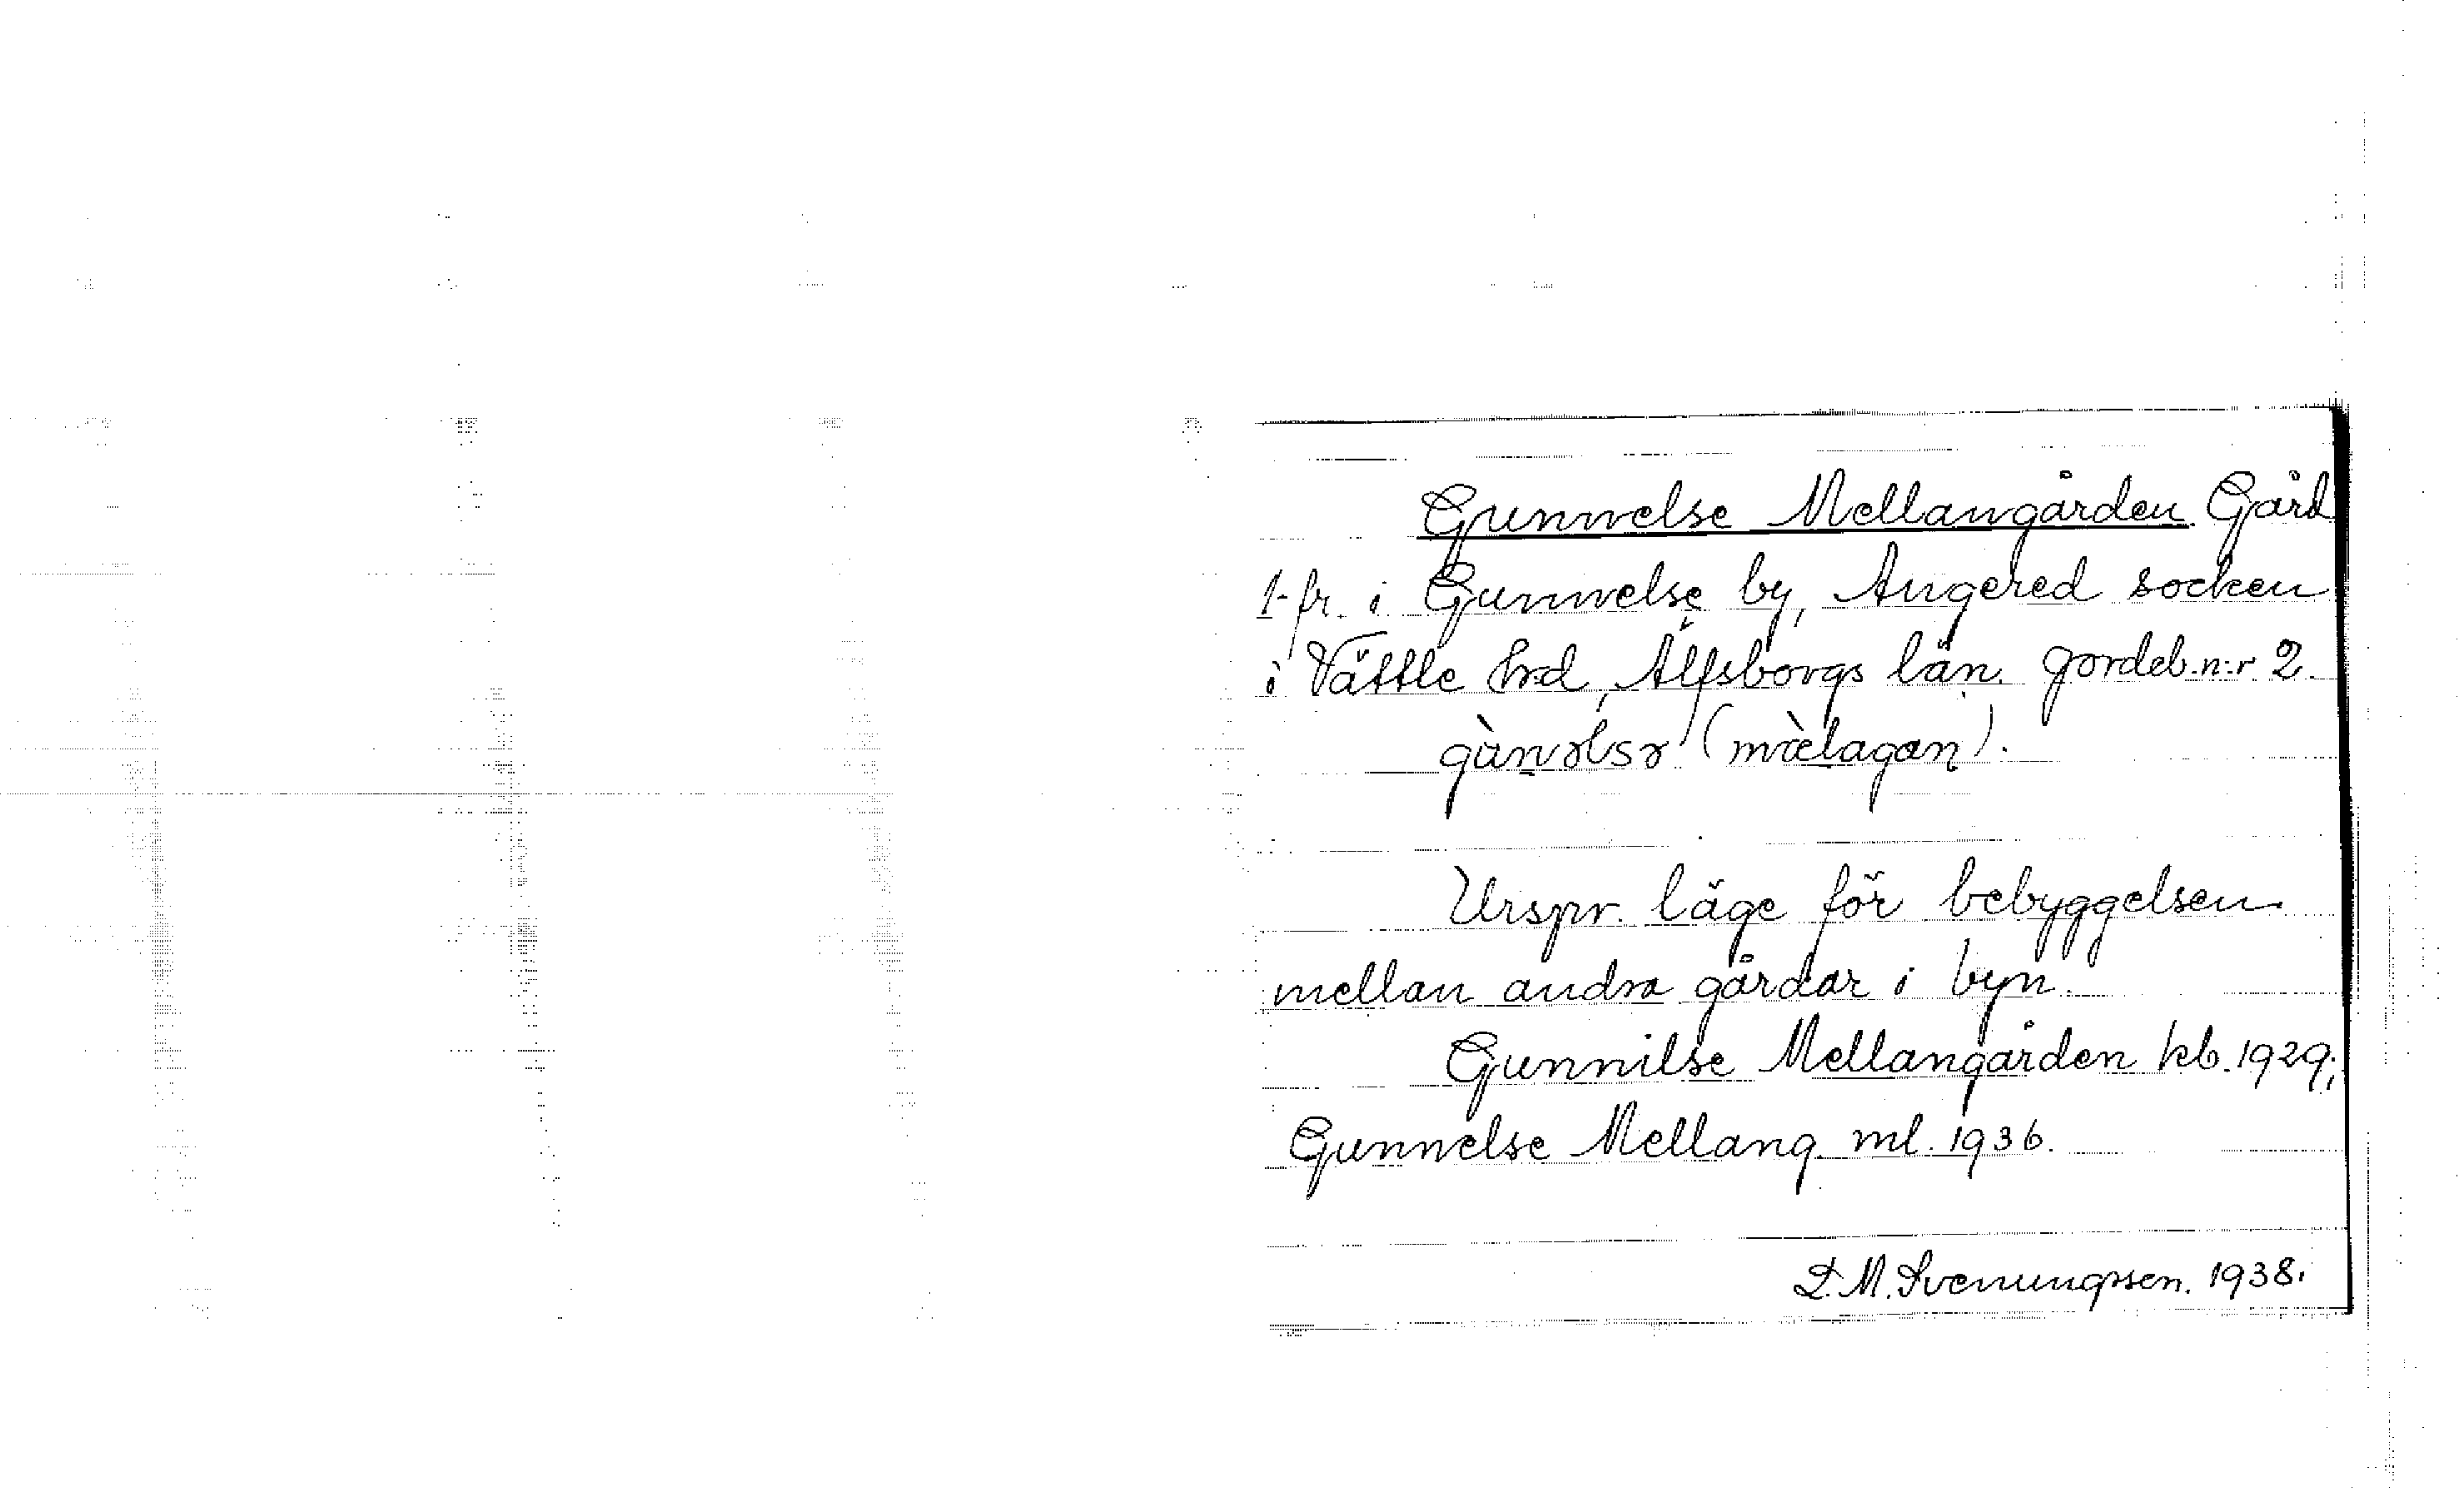 Gunnelse Mellangården Gård
1-fr. i Gunnelse by, Angered socken
i Vättle hrd, Älfsborgs län. Jordeb.n:r 2.
Urspr. läge för bebyggelsen
mellan andra gårdar i byn.
Gunnilse Mellangården kb. 1929;
Gunnelse Mellang. ml. 1936.
D.M. Svenungssen. 1938.